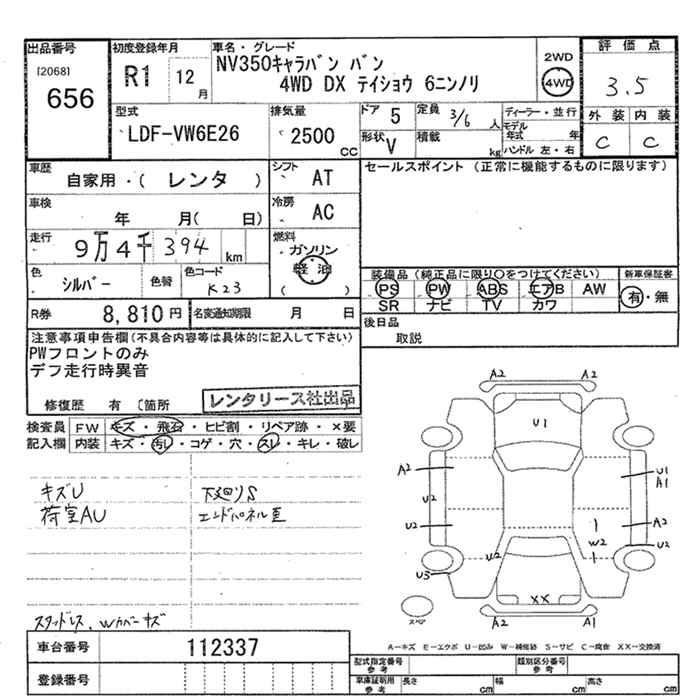 出品番号
[2068]
656
初度登録年月
R1 12月
車名・グレード
NV350キャラバン バン
4WD DX テイショウ 6ニンノリ
2WD
4WD
評価点
3.5
外装 内装
C C
型式
LDF-VW6E26
排気量
2500 CC
ドア 5
定員 3/6 人
形状 V
積載 kg
ディーラー・並行
モデル年式 年
ハンドル 左・右
車歴
自家用・( レンタ )
シフト AT
セールスポイント (正常に機能するものに限ります)
車検
年 月( 日)
冷房 AC
走行
9万4千394 km
燃料
ガソリン
軽油
( )
色 シルバー
色替
色コード K23
装備品 (純正品に限り〇をつけてください)
PS PW ABS エアB AW
SR ナビ TV カワ
新車保証書
有・無
R券 8,810円
名変通知期限 月 日
後日品
取説
注意事項申告欄(不具合内容等は具体的に記入して下さい)
PWフロントのみ
デフ走行時異音
修復歴 有 〔箇所
レンタリース社出品
検査員記入欄
FW キズ・飛石・ヒビ割・リペア跡・×要
内装 キズ・汚レ・コゲ・穴・スレ・キレ・破レ
キズU 下廻りS
荷室AU エンドパネル重
スタッドレス、Wカバーキズ
車台番号 112337
登録番号
A2 A2
U1
A2
U1
A1
U2
U2
A2
W2
U2
U2
U3
XX
スペア
A2 A1
A-キズ E-エクボ U-凹み W-補修跡 S-サビ C-腐食 XX-交換済
型式指定番号 参考
類別区分番号 参考
車庫証明用 参考
長さ cm
幅 cm
高さ cm